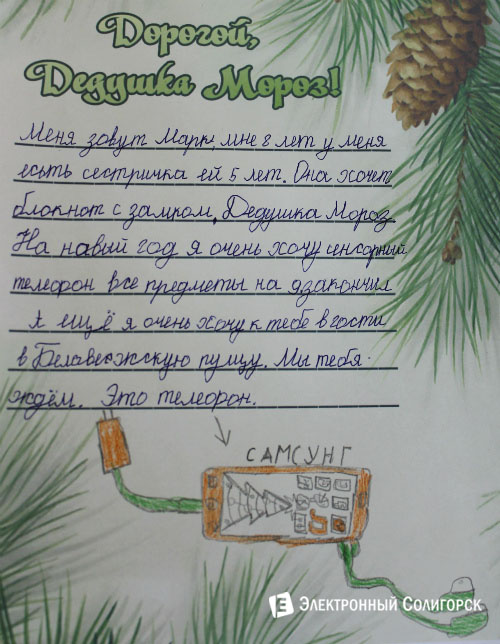 Дорогой,
Дедушка Мороз!
Меня зовут Марк, мне 8 лет у меня
есьть сестричка ей 5 лет. Она хочет
блокнот с замком, Дедушка Мороз
На навый год я очень хочу сенсорный
телефон все предметы на 9закончил
А ещё я очень хочу к тебе в гости
в Белавежскую пущу. Мы тебя
ждём. Это телефон.
САМСУНГ
E Электронный Солигорск